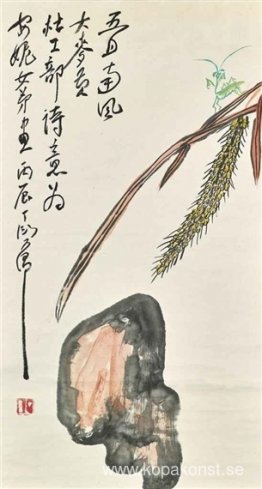 五月南風
大麥黃
杜工部詩意为
安妮女弟畫丙辰丁衍庸
www.kopakonst.se